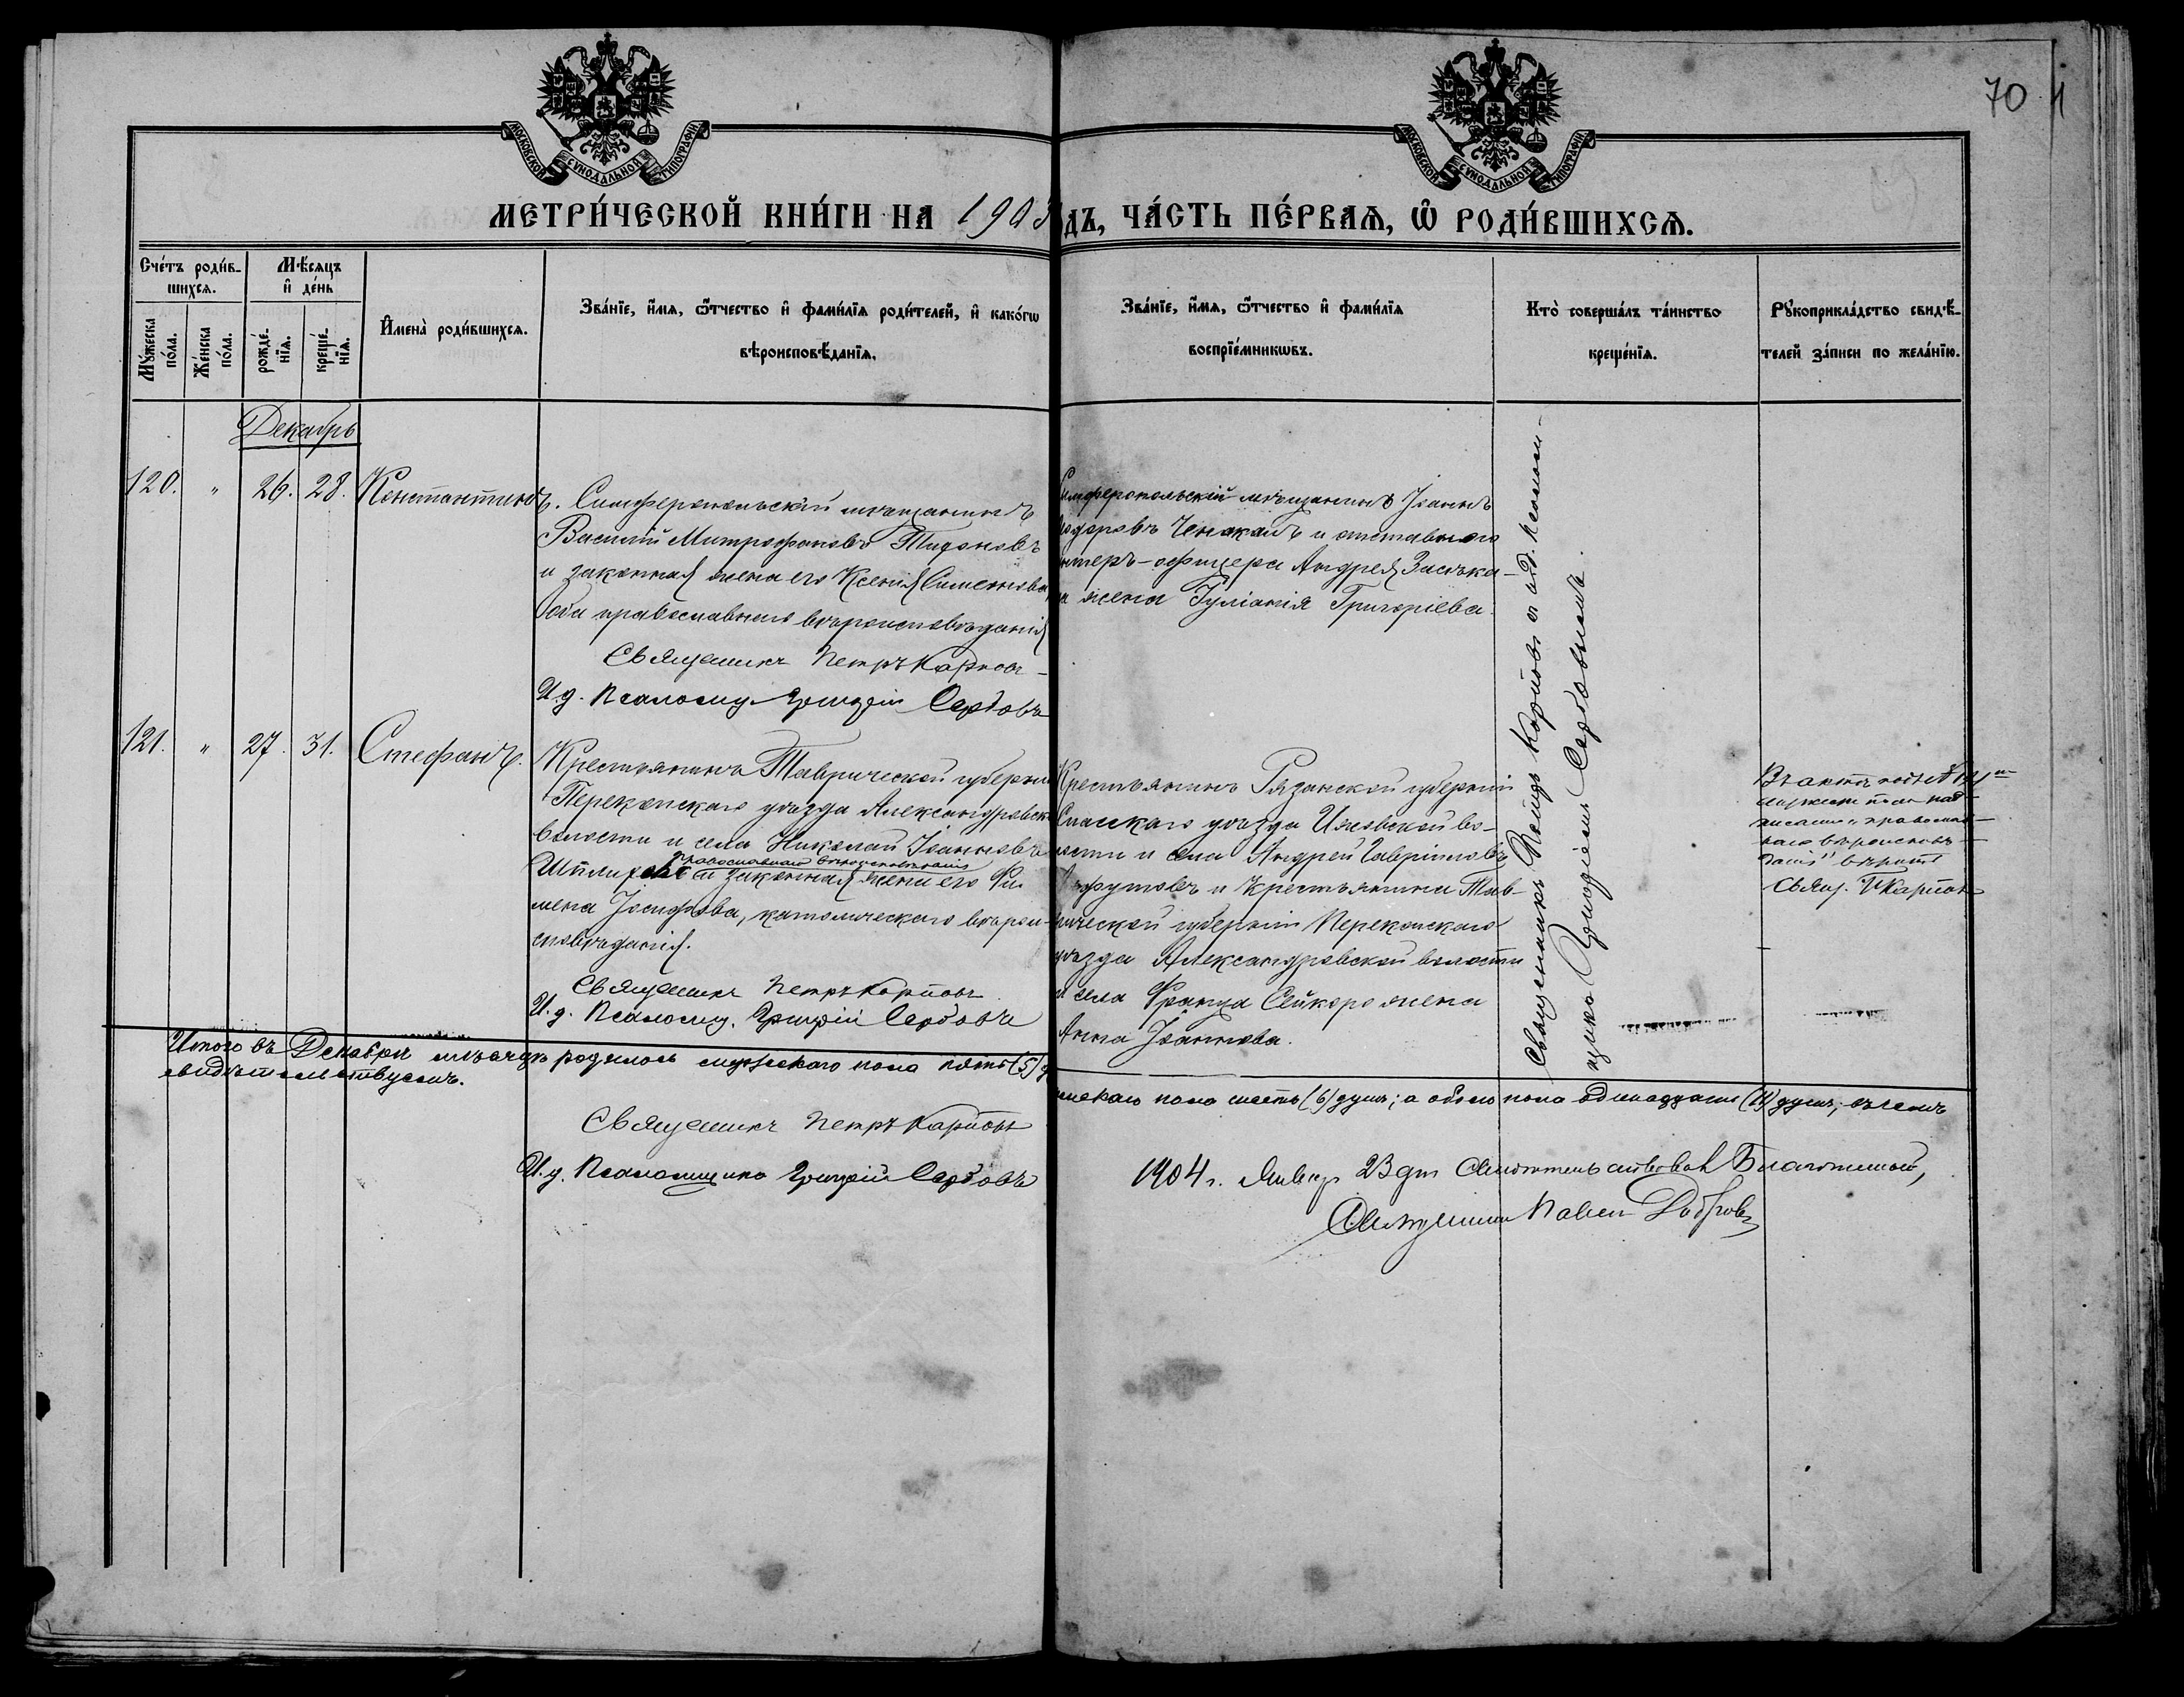 70
МОСКОВСКОЙ СѴНОДАЛЬНОЙ ТИПОГРАФІИ
МОСКОВСКОЙ СѴНОДАЛЬНОЙ ТИПОГРАФІИ
МЕТРИ́ЧЕСКОЙ КНИ́ГИ НА 1903 ДЪ, ЧА́СТЬ ПЕ́РВАѦ, Ѿ РОДИ́ВШИХСѦ.
Сче́тъ роди́в-
шихсѧ.
Мѣ́сѧцъ
и҆ де́нь
Мꙋ́жеска
по́ла.
Же́нска
по́ла.
рожде́-
нїѧ.
креще́-
нїѧ.
И҆мена̀ роди́вшихсѧ.
Зва́нїе, и҆́мѧ, ѻ҆́тчество и҆ фами́лїѧ роди́телей, и҆ како́гѡ
вѣроисповѣ́данїѧ.
Зва́нїе, и҆́мѧ, ѻ҆́тчество и҆ фами́лїѧ
воспрїе́мникѡвъ.
Кто̀ соверша́лъ та́инство
креще́нїѧ.
Рꙋкоприкла́дство свидѣ́-
телей за́писи по жела́нїю.
Декабрь
120. " 26. 28. Константинъ.
Симферопольскій мѣщанинъ
Василій Митрофановъ Тихоновъ
и законная жена его Ксенія Симеонова,
оба православнаго вѣроисповѣданія
Священникъ Петръ Карповъ
И. д. Псаломщ. Григорій Сербовъ
Симферопольскій мѣщанинъ Іоаннъ
Ѳедоровъ Ченакалъ и отставного
унтеръ-офицера Андрея
жена Іуліанія Григоріева.
Священникъ Петръ Карповъ и и.д. Псалом-
щика Григоріемъ Сербовымъ.
121. " 27. 31. Стефанъ.
Крестьянинъ Таврической губерніи
Перекопскаго уѣзда Александровск
волости и села Николай Іоанновъ
православнаго вѣроисповѣданія
и законная жена его Фи-
мена Іосифова, католическаго вѣрои-
сповѣданія.
Священникъ Петръ Карповъ
И. д. Псаломщ. Григорій Сербовъ
Крестьянинъ Рязанской губерніи
Спасскаго уѣзда Ижевской во-
лости и села Андрей Гавріиловъ
и крестьянина Тав-
рической губерніи Перекопскаго
уѣзда Александровской волости
и села Франца жена
Анна Іоаннова.
Въ актѣ подъ № 121м
над-
писано "православ-
наго вѣроисповѣ-
данія" вѣрить
Свящ. П. Карповъ
Итого въ Декабрѣ мѣсяцѣ родилось мужескаго пола пять (5) д
женскаго пола шесть (6) душъ; а обоего пола одиннадцать (11) душъ; въ чемъ
свидѣтельствуемъ.
Священникъ Петръ Карповъ
И. д. Псаломщика Григорій Сербовъ
1904 г. Январ 23 дня свидѣтельствовалъ Благочинный,
Священникъ Павелъ Добровъ